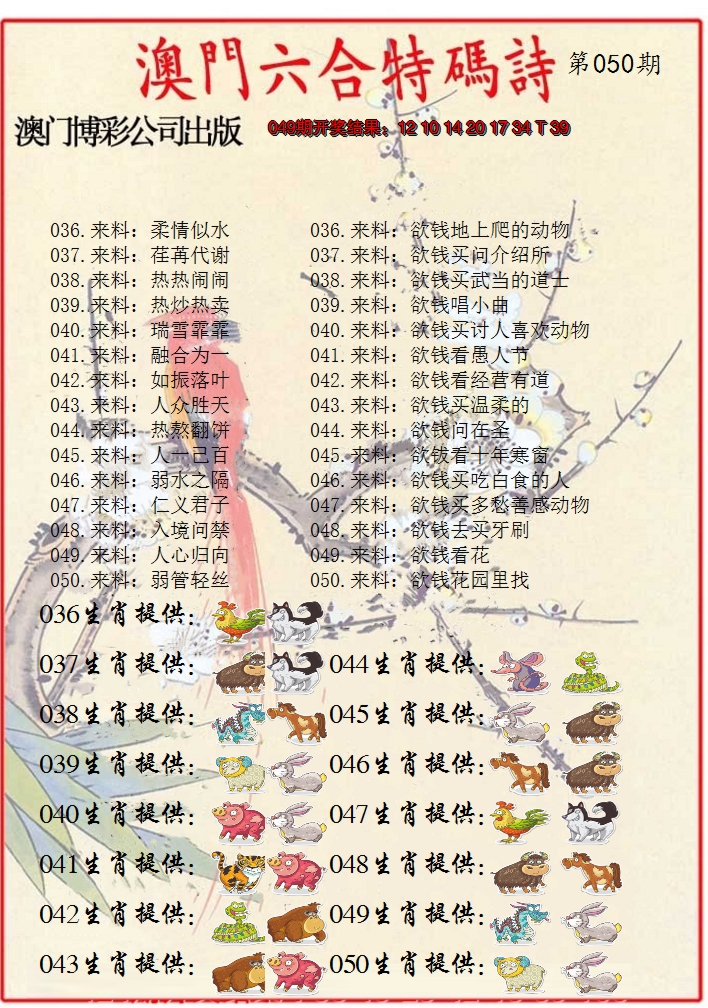 澳門六合特碼詩 第050期
澳门博彩公司出版 049期开奖结果：12 10 14 20 17 34 T 39
036.来料：柔情似水 036.来料：欲钱地上爬的动物
037.来料：荏苒代谢 037.来料：欲钱买问介绍所
038.来料：热热闹闹 038.来料：欲钱买武当的道士
039.来料：热炒热卖 039.来料：欲钱唱小曲
040.来料：瑞雪霏霏 040.来料：欲钱买讨人喜欢动物
041.来料：融合为一 041.来料：欲钱看愚人节
042.来料：如振落叶 042.来料：欲钱看经营有道
043.来料：人众胜天 043.来料：欲钱买温柔的
044.来料：热熬翻饼 044.来料：欲钱问在圣
045.来料：人一己百 045.来料：欲钹看十年寒窗
046.来料：弱水之隔 046.来料：欲钱买吃白食的人
047.来料：仁义君子 047.来料：欲钱买多愁善感动物
048.来料：入境问禁 048.来料：欲钱去买牙刷
049.来料：人心归向 049.来料：欲钱看花
050.来料：弱管轻丝 050.来料：欲钱花园里找
036生肖提供：
037生肖提供： 044生肖提供：
038生肖提供： 045生肖提供：
039生肖提供： 046生肖提供：
040生肖提供： 047生肖提供：
041生肖提供： 048生肖提供：
042生肖提供： 049生肖提供：
043生肖提供： 050生肖提供：